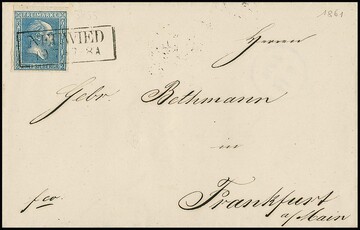 1861
FREIMARKE
NEUWIED
Herren
Gebr. Bethmann
in
fco.
Frankfurt
a/Main